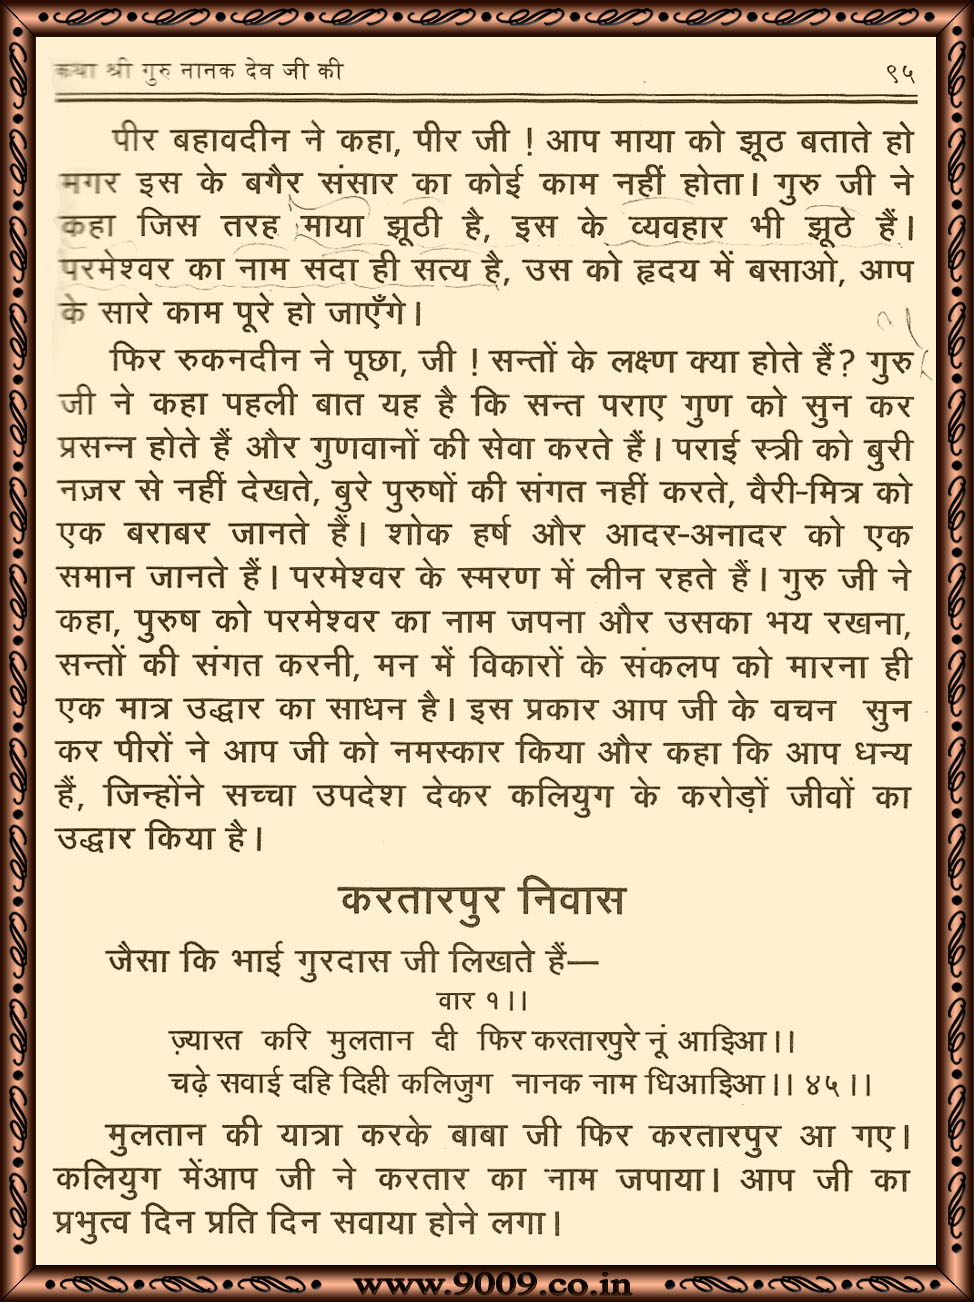 कथा श्री गुरु नानक देव जी की ९५
पीर बहावदीन ने कहा, पीर जी ! आप माया को झूठ बताते हो
मगर इस के बगैर संसार का कोई काम नहीं होता। गुरु जी ने
कहा जिस तरह माया झूठी है, इस के व्यवहार भी झूठे हैं।
परमेश्वर का नाम सदा ही सत्य है, उस को हृदय में बसाओ, आप
के सारे काम पूरे हो जाएँगे।
फिर रुकनदीन ने पूछा, जी ! सन्तों के लक्ष्ण क्या होते हैं? गुरु
जी ने कहा पहली बात यह है कि सन्त पराए गुण को सुन कर
प्रसन्न होते हैं और गुणवानों की सेवा करते हैं। पराई स्त्री को बुरी
नज़र से नहीं देखते, बुरे पुरुषों की संगत नहीं करते, वैरी-मित्र को
एक बराबर जानते हैं। शोक हर्ष और आदर-अनादर को एक
समान जानते हैं। परमेश्वर के स्मरण में लीन रहते हैं। गुरु जी ने
कहा, पुरुष को परमेश्वर का नाम जपना और उसका भय रखना,
सन्तों की संगत करनी, मन में विकारों के संकलप को मारना ही
एक मात्र उद्धार का साधन है। इस प्रकार आप जी के वचन सुन
कर पीरों ने आप जी को नमस्कार किया और कहा कि आप धन्य
हैं, जिन्होंने सच्चा उपदेश देकर कलियुग के करोड़ों जीवों का
उद्धार किया है।
करतारपुर निवास
जैसा कि भाई गुरदास जी लिखते हैं—
वार १।।
ज़्यारत करि मुलतान दी फिर करतारपुरे नूं आइिआ।।
चढ़े सवाई दहि दिही कलिजुग नानक नाम धिआइिआ।। ४५।।
मुलतान की यात्रा करके बाबा जी फिर करतारपुर आ गए।
कलियुग मेंआप जी ने करतार का नाम जपाया। आप जी का
प्रभुत्व दिन प्रति दिन सवाया होने लगा।
www.9009.co.in